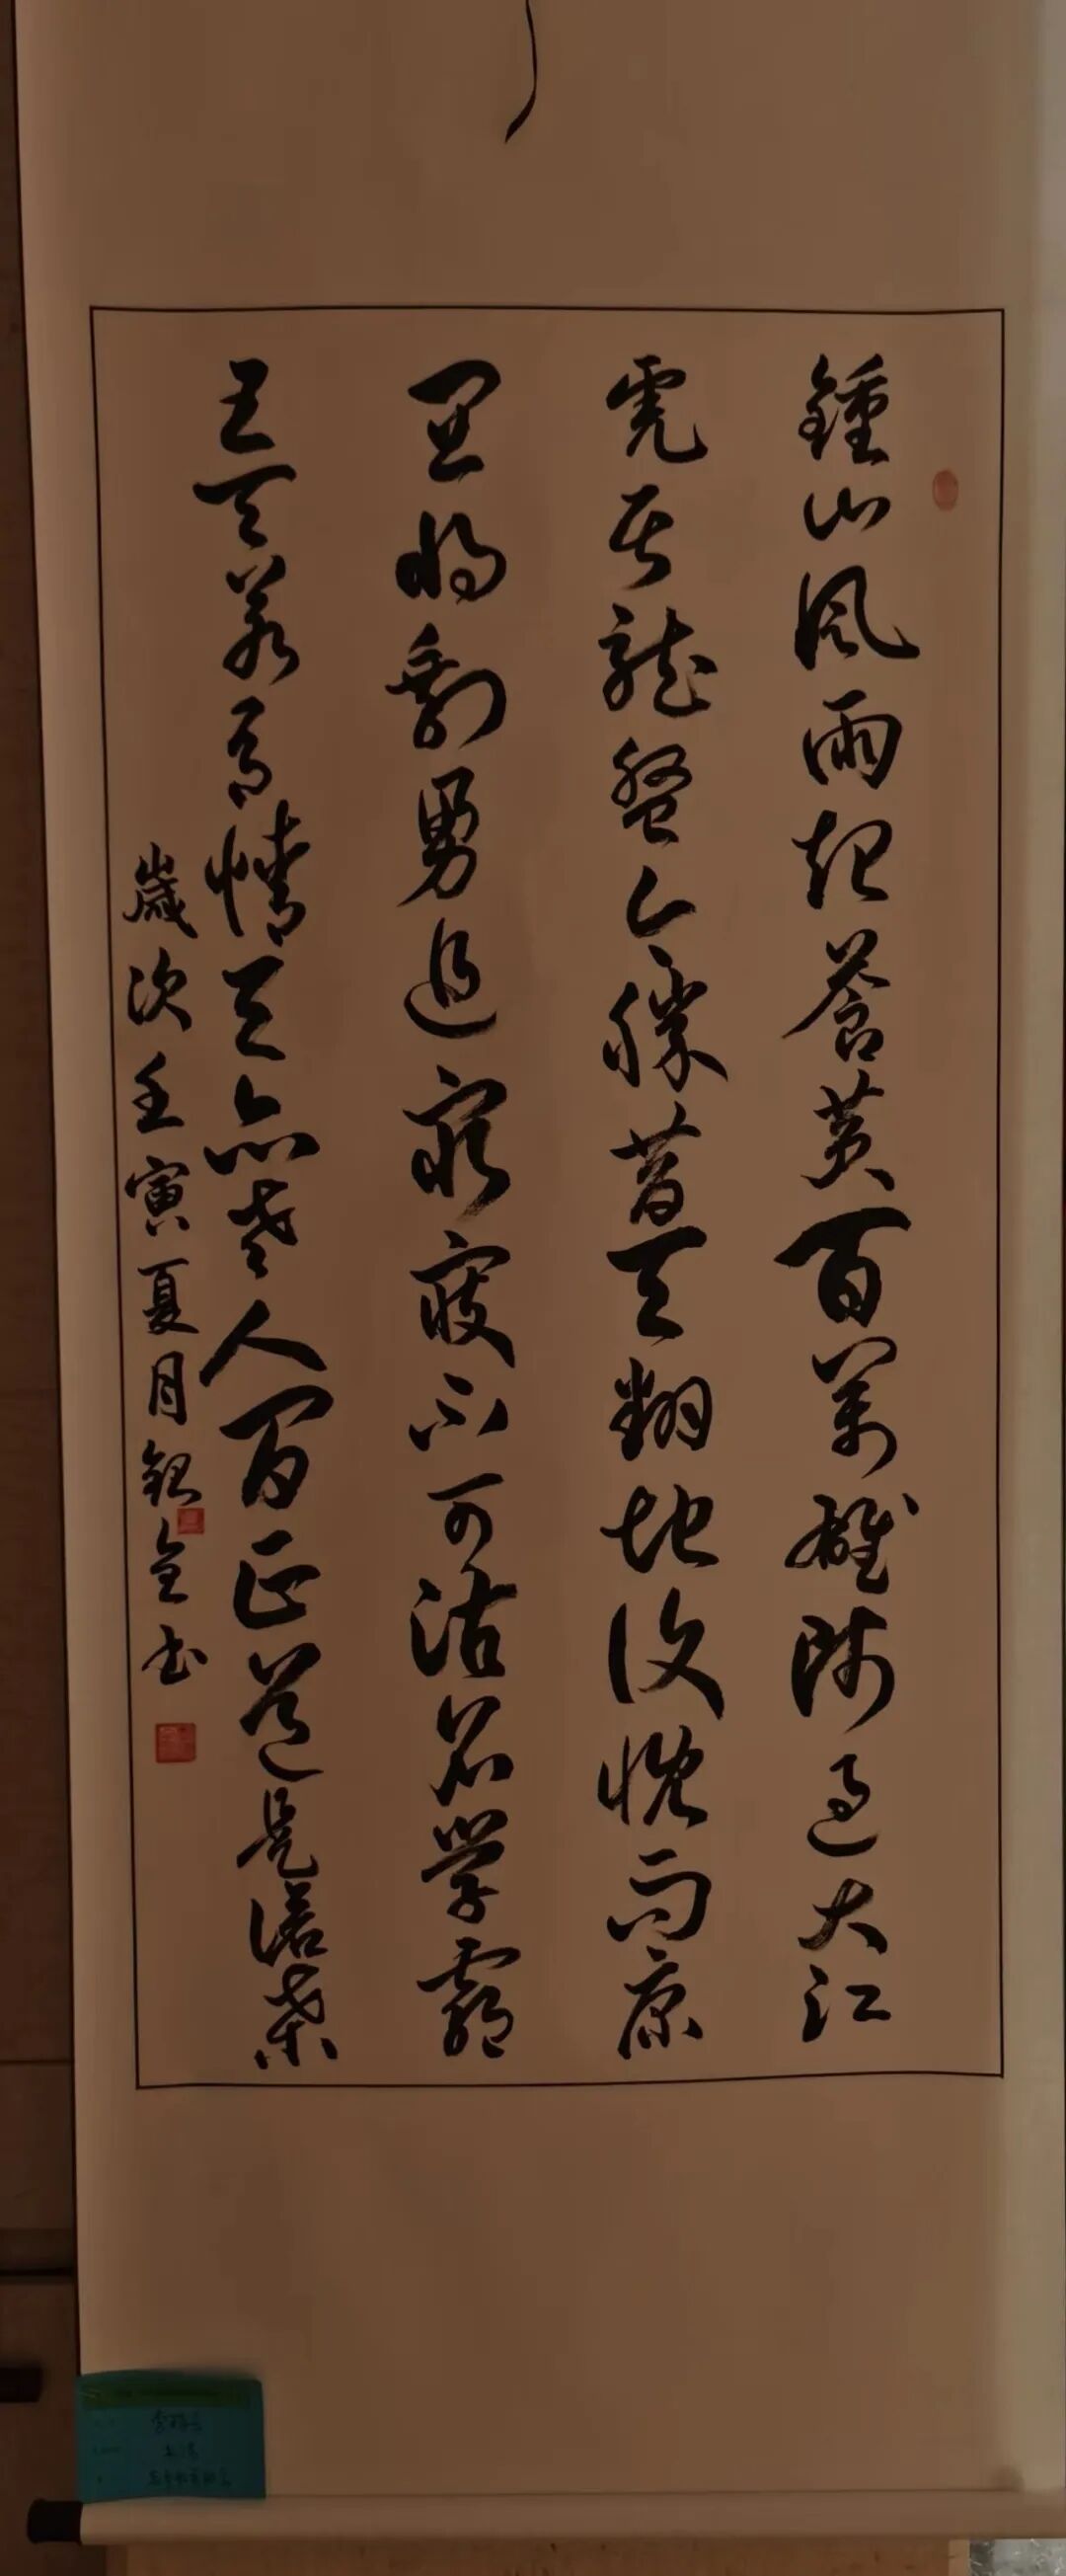 鍾山風雨起蒼黃百萬雄師過大江
虎踞龍盤今勝昔天翻地復慨而慷
宜將剩勇追窮寇不可沽名學霸
王天若有情天亦老人間正道是滄桑
歲次壬寅夏月銀金书